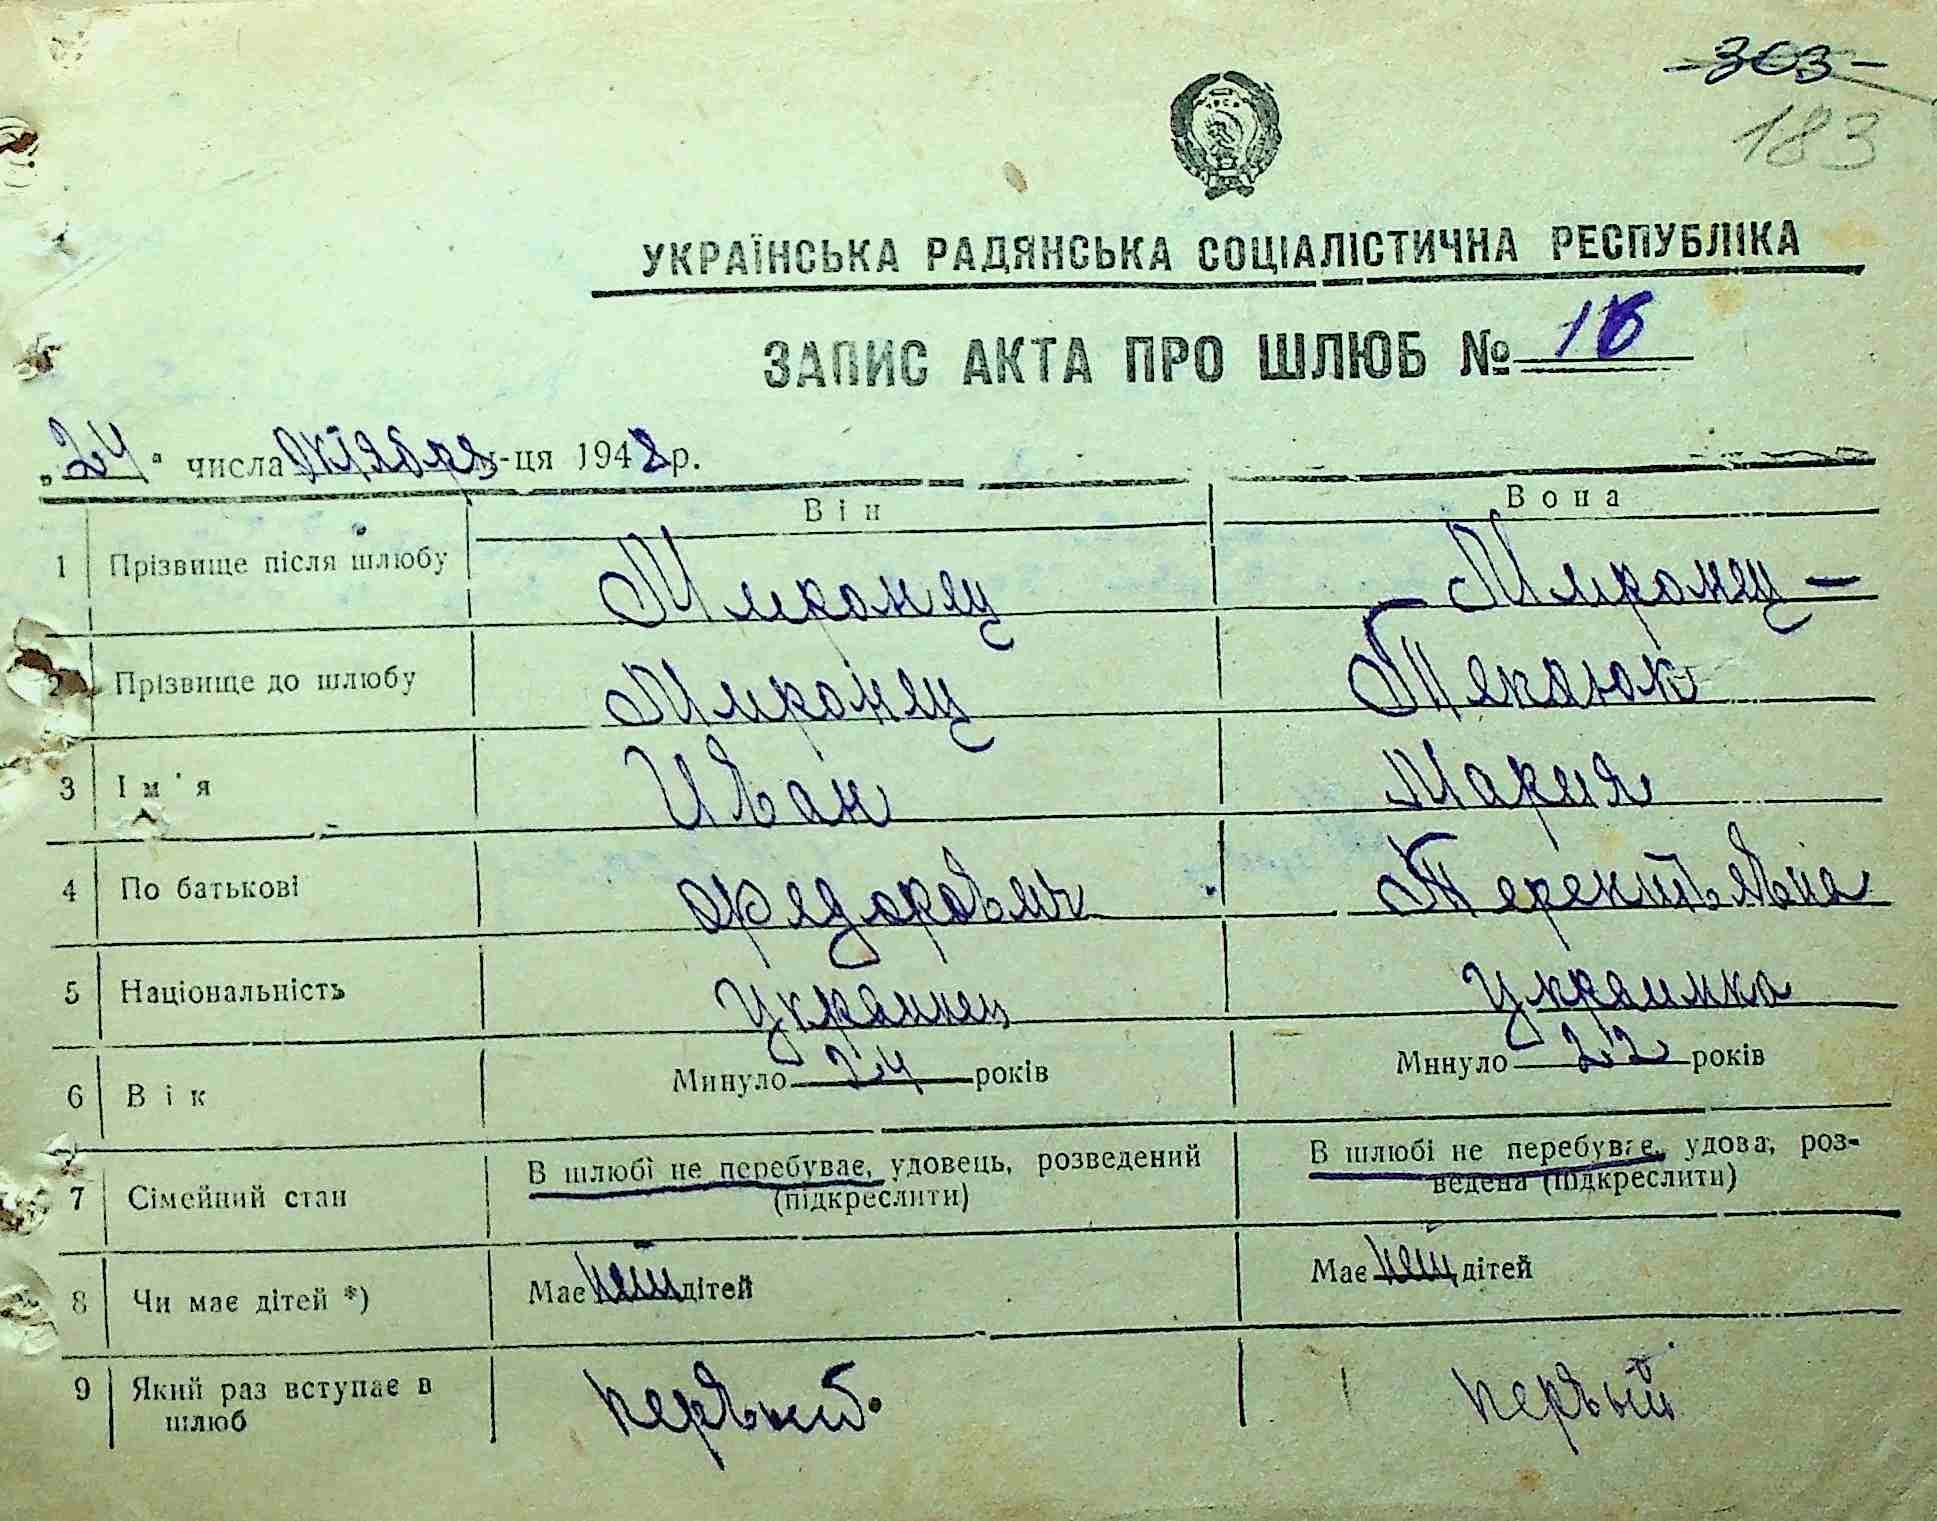 -303-
183
УКРАЇНСЬКА РАДЯНСЬКА СОЦІАЛІСТИЧНА РЕСПУБЛІКА
ЗАПИС АКТА ПРО ШЛЮБ № 16
„24" числа Октября м-ця 1948 р.
Він Вона
1 Прізвище після шлюбу Миронец Миронец -
2 Прізвище до шлюбу Миронец
3 Ім'я Иван Мария
4 По батькові Федорович Терентьевна
5 Національність Украинец Украинка
6 Вік Минуло 24 років Минуло 22 років
7 Сімейний стан В шлюбі не перебуває, удовець, розведений (підкреслити) В шлюбі не перебуває, удова, роз-
ведена (підкреслити)
8 Чи має дітей *) Має нет дітей Має нет дітей
9 Який раз вступає в первый первый
шлюб